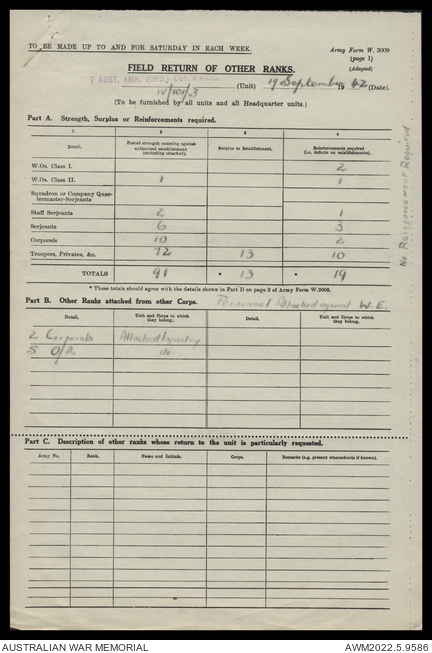 TO BE MADE UP TO AND FOR SATURDAY IN EACH WEEK.
Army Form W. 3009
(page 1)
(Adapted)
FIELD RETURN OF OTHER RANKS.
7 AUST. AMN. (ORD.) COY. A.A.O.C. (Unit) 19 September 1942 (Date).
IV/101/3
(To be furnished by all units and all Headquarter units.)
Part A. Strength, Surplus or Reinforcements required.
1 2 3 4
Detail. Posted strength counting against authorized establishment (excluding attached). Surplus to Establishment. Reinforcements required (i.e. deficits on establishments).
W.Os. Class I. 2
W.Os. Class II. 1 1
Squadron or Company Quar-
termaster-Serjeants
Staff Serjeants 2 1
Serjeants 6 3
Corporals 10 2
Troopers, Privates, &c. 72 13 10
TOTALS 91 * 13 * 19
* These totals should agree with the details shown in Part D on page 2 of Army Form W.3009.
No Reinforcement Required
Part B. Other Ranks attached from other Corps. Personnel Attached against W.E.
Detail. Unit and Corps to which they belong. Detail. Unit and Corps to which they belong.
2 Corporals Attached
5 O/R do
Part C. Description of other ranks whose return to the unit is particularly requested.
Army No. Rank. Name and Initials. Corps. Remarks (e.g. present whereabouts if known).
AUSTRALIAN WAR MEMORIAL
AWM2022.5.9586